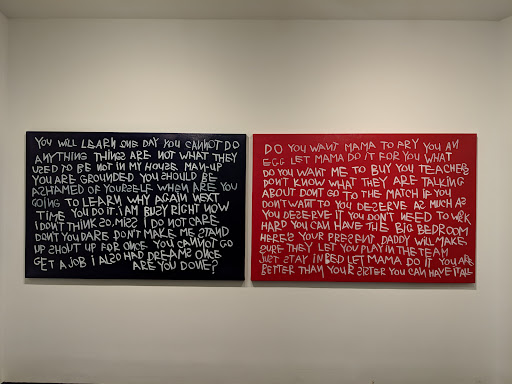 YOU WILL LEARN ONE DAY YOU CANNOT DO
ANYTHING THINGS ARE NOT WHAT THEY
USED TO BE NOT IN MY HOUSE MAN-UP
YOU ARE GROUNDED YOU SHOULD BE
ASHAMED OF YOURSELF WHEN ARE YOU
GOING TO LEARN WHY AGAIN NEXT
TIME YOU DO IT. I AM BUSY RIGHT NOW
I DON'T THINK SO, MISS I DO NOT CARE
DON'T YOU DARE DON'T MAKE ME STAND
UP SHOUT UP FOR ONCE YOU CANNOT GO
GET A JOB I ALSO HAD DREAMS ONCE
ARE YOU DONE?
DO YOU WANT MAMA TO FRY YOU AN
EGG LET MAMA DO IT FOR YOU WHAT
DO YOU WANT ME TO BUY YOU TEACHERS
DON'T KNOW WHAT THEY ARE TALKING
ABOUT DON'T GO TO THE MATCH IF YOU
DON'T WANT TO YOU DESERVE AS MUCH AS
YOU DESERVE IT YOU DON'T NEED TO WORK
HARD YOU CAN HAVE THE BIG BEDROOM
HERE'S YOUR PRESENT DADDY WILL MAKE
SURE THEY LET YOU PLAY IN THE TEAM
JUST STAY IN BED LET MAMA DO IT YOU ARE
BETTER THAN YOUR SISTER YOU CAN HAVE IT ALL